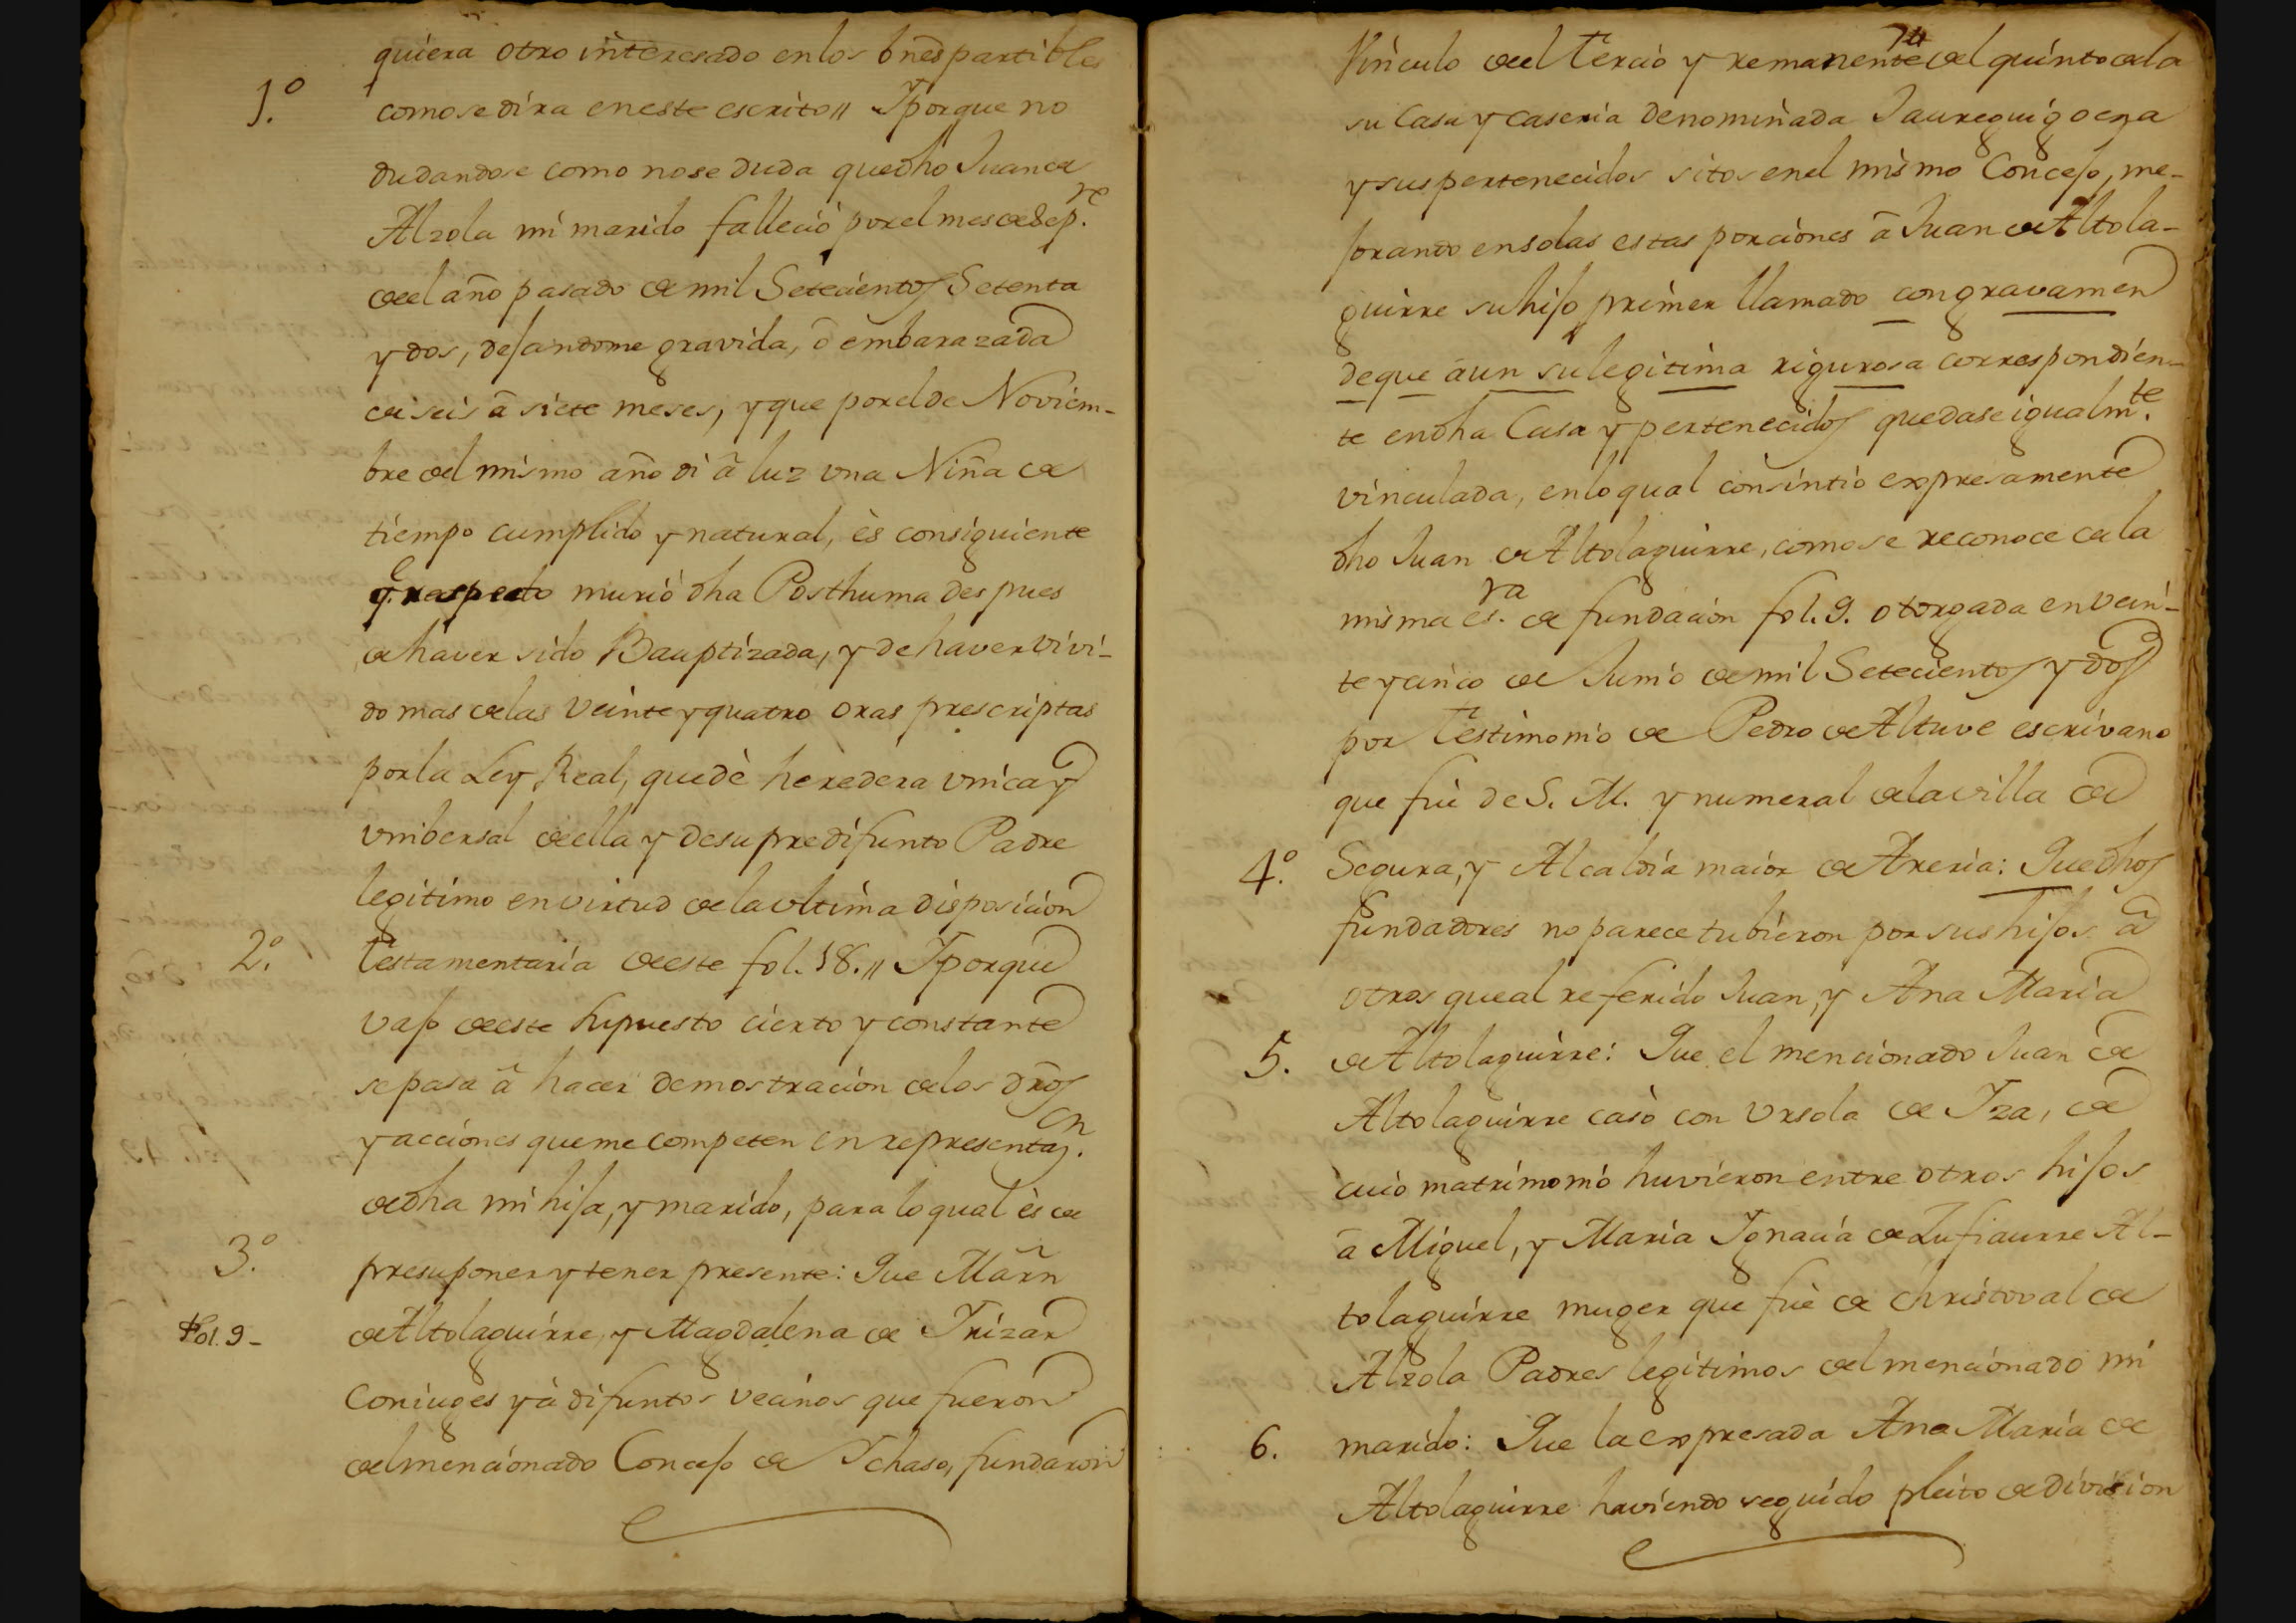 quiera otro interesado en los bnēs partibles
1.º como se dira en este escrito,, Y porque no
dudandose como no se duda que dho Juan de
Alzola mi marido falleciò por el mes de Sep.re
de el año pasado de mil Setecientos Setenta
y dos, dejandome gravida, ò embarazada
de seis â siete meses, y que por el de Noviem-
bre del mismo año di â luz vna Niña de
tiempo cumplido y natural, ès consiguiente
q.e respecto muriò dha Posthuma despues
de haver sido Bauptizada, y de haver vivi-
do mas de las veinte y quatro oras prescriptas
por la Ley Real, quedè heredera vnica y
vnibersal de ella y de su predifunto Padre
legitimo en virtud de la vltima disposicion
2.º testamentaria de este fol. 18.,, Y porque
vajo de este supuesto cierto y constante
se pasa â hacer demostracion de los drōs
y acciones que me competen en representaz.on
de dha mi hija, y marido, para lo qual ès de
3.º presuponer y tener presente: Que Mârñ
Fol. 9- de Altolaguirre, y Magdalena de Yrizar
Coniuges yà difuntos vecinos que fueron
del mencionado Concejo de Ychaso, fundaron
74
Vinculo de el Tercio y remanente del quinto de la
su Casa y caseria denominada Jaureguigoena
y sus pertenecidos sitos en el mismo Concejo, me-
jorando en solas estas porciones â Juan de Altola-
guirre su hijo primer llamado con gravamen
de que aun su legitima rigurosa correspondien-
te en dha Casa y pertenecidos quedase igualm.te
vinculada, en lo qual consintiò expresamente
dho Juan de Altolaguirre, como se reconoce de la
misma es.ra de fundacion fol. 9. otorgada en vein-
te y cinco de Junio de mil Setecientos y dos
por testimonio de Pedro de Altuve escrivano
que fuè de S. M. y numeral de la villa de
4.º Segura, y Alcaldia maior de Areria: Que dhos
fundadores no parece tubieron por sus hijos â
otros que al referido Juan, y Ana Maria
5. de Altolaguirre: Que el mencionado Juan de
Altolaguirre casò con Vrsola de Yza, de
cuio matrimonio huvieron entre otros hijos
â Miguel, y Maria Ygnacia de Lufiaurre Al-
tolaguirre muger que fuè de Christoval de
Alzola Padres legitimos del mencionado mi
6. marido: Que la expresada Ana Maria de
Altolaguirre haviendo seguido pleito de division